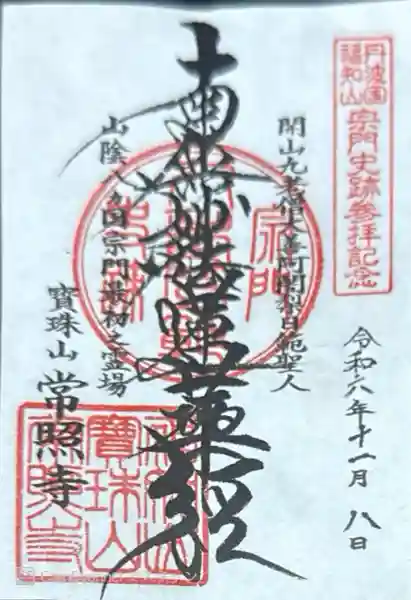 丹波国
福知山
宗門史跡参拝記念
令和六年十一月八日
開山九老僧大善阿闍梨日範聖人
南無妙法蓮華経
山陰八カ国宗門最初之霊場
寶珠山 常照寺
宗門
寶珠山